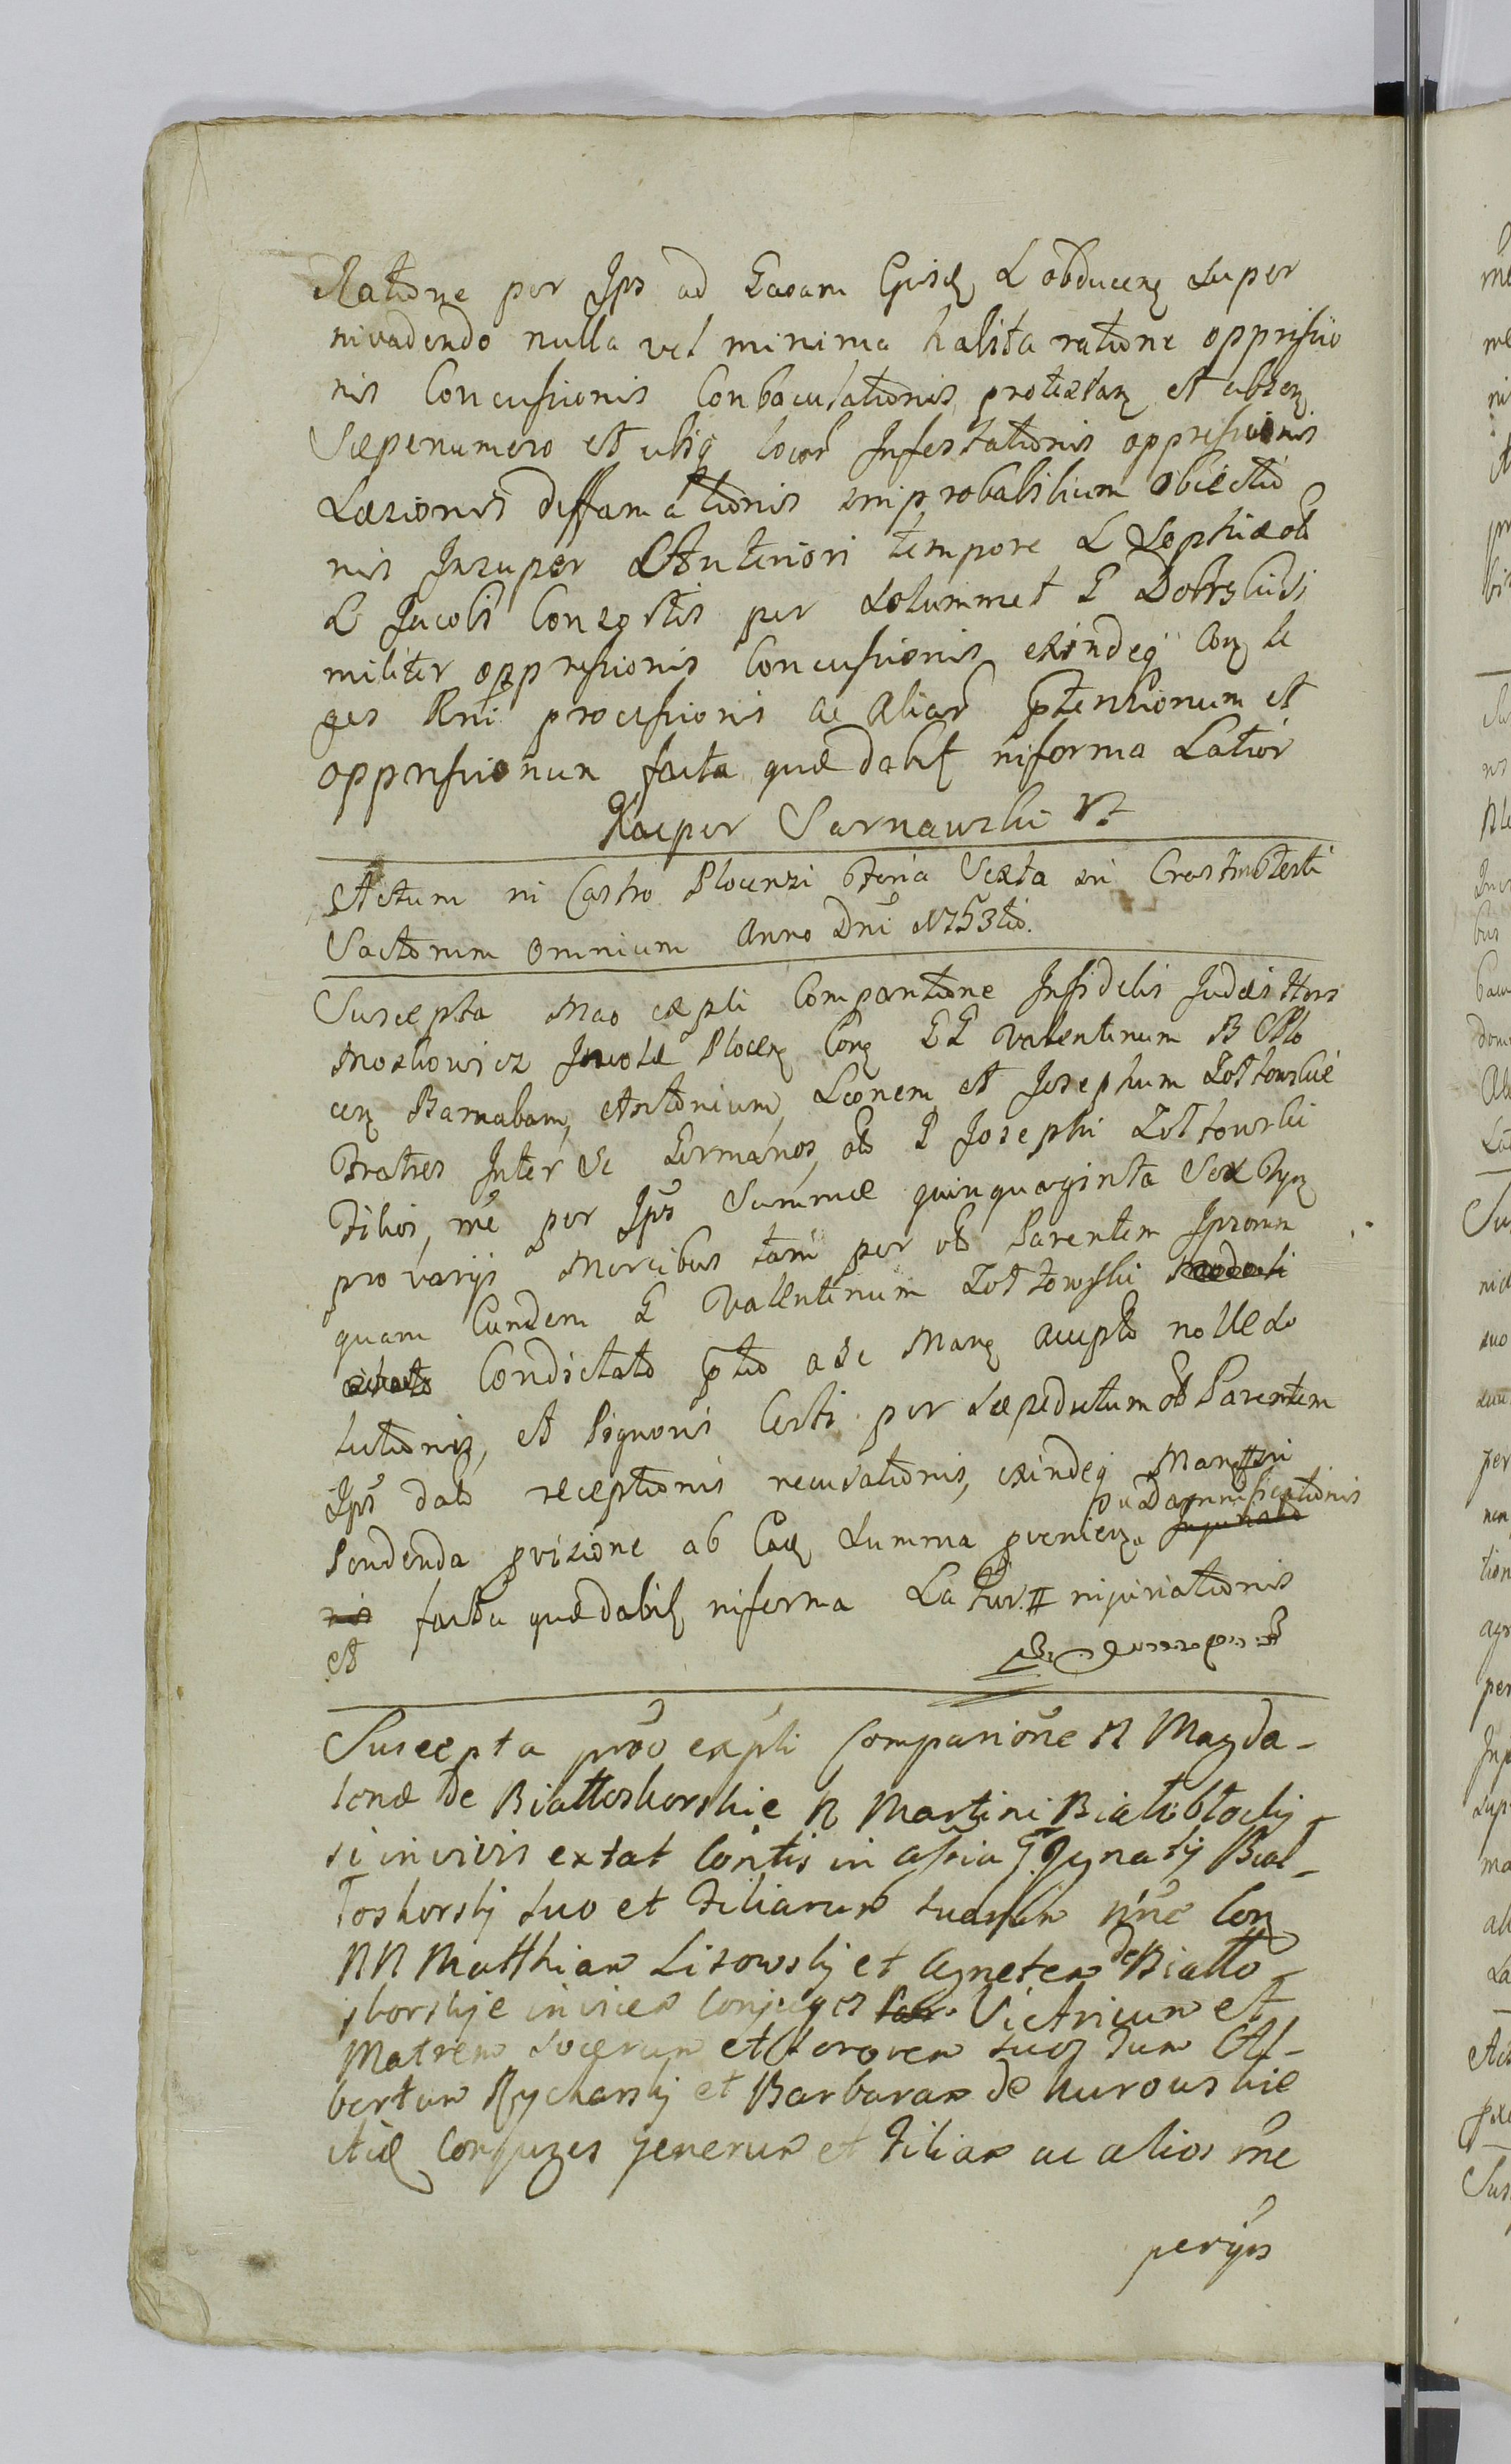 Ratione per Ips ad Easam Ejusd L obducenz super
invadendo nulla vel minima habita ratione oppressio
nis Concussionis Conbaculationis, protestanz et absenz
Sæpenumero et ubiq locor Infestationis oppressionis
Læsionis diffamationis improbabilium obiectio
nis Insuper Anteriori tempore L Sophiæ ol
L Jacobi Consortis per solummet G Dobrski Si
militer oppressionis Concussionis exindeq Conz le
ges Rni processionis ac Aliar ptensionum et
oppressionum facta quæ dabit informa Latior
Kacper Sarnawski
Actum in Castro Plocensi Feria Sexta in Crastino Festi
Sactorum Omnium Anno Dni 1753tio.
Suscepta Mao expli Comparitione Infidelis Judæi Hers
Moszkowicz Incolæ Plocenz Conz GG Valentinum B Plo
cenz Barnabam, Antonium, Leonem et Josephum Zołtowskie
Fratres Inter Se Germanos, ol G Josephi Zołtowski
Filios, me per Ips Summæ quinquaginta Sex Tynz
pro varijs Mercibus tam per ol Parentem Ipsorum
quam Eundem G Valentinum Zołtowski
Condictato ptio a Se Manz accepto no Ue So
lutionis, et Pignoris Certi per sæpedictum ol Parentem
Ips dato receptionis recusationis, exindeq Manz # in
pu Damnificationis
Pendenda pvisione ab Ead summa pvenienz Injuriatio
nis facta quæ dabit informa Latiur. # injuriationis
et
Suscepta prov expli Comparione N Magda-
lenæ de Białłoskorskie N Martini Białobłocki
si in vivis extat Contis in assia G Ignatij Biał-
łoskorskij suo et Filiarum suarum nne Con
NN Matthiam Lisowskij et Agnetem de Białło
skorskie invicem Conjuges Victricum et
Matrem Socerum et Sororem suoz tum Al-
bertum Rycharskij et Barbaram de Kurowskie
itid Conjuges generum et Filiam ac alios me
perips